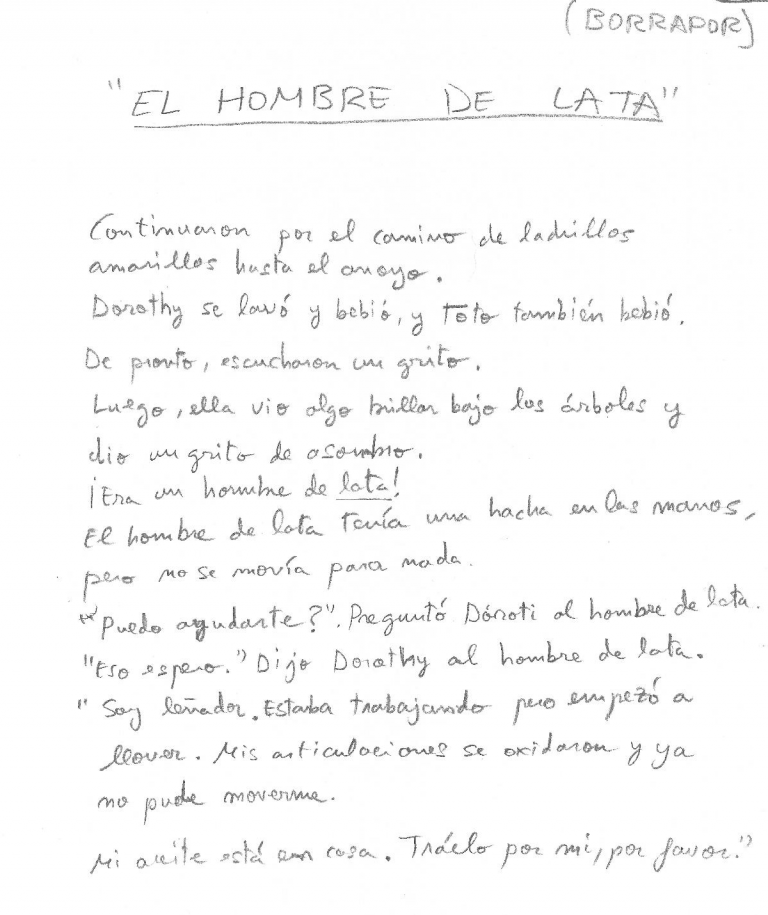 (BORRADOR)
"EL HOMBRE DE LATA"
Continuaron por el camino de ladrillos
amarillos hasta el arroyo.
Dorothy se lavó y bebió, y Toto también bebió.
De pronto, escucharon un grito.
Luego, ella vio algo brillar bajo los árboles y
dio un grito de asombro.
¡Era un hombre de lata!
El hombre de lata tenía una hacha en las manos,
pero no se movía para nada.
"Puedo ayudarte?". Preguntó Dóroti al hombre de lata.
"Eso espero." Dijo Dorothy al hombre de lata.
"Soy leñador. Estaba trabajando pero empezó a
llover. Mis articulaciones se oxidaron y ya
no pude moverme.
Mi aceite está en casa. Tráelo por mí, por favor."